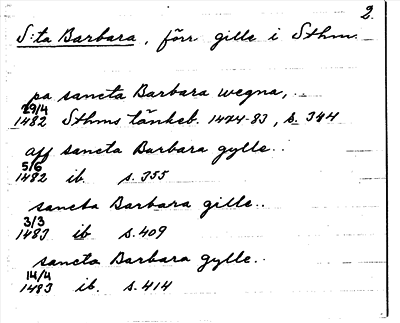 2.
S:ta Barbara, förr gille i Sthm.
pa sancta Barbara wegna, .
29/4
1482 Sthms tänkeb. 1474-83, s. 344
aff sancta Barbara gylle . .
5/6
1482 ib. s. 355
sancta Barbara gille . .
3/3
1483 ib s. 409
sancta Barbara gylle . .
14/4
1483 ib. s. 414